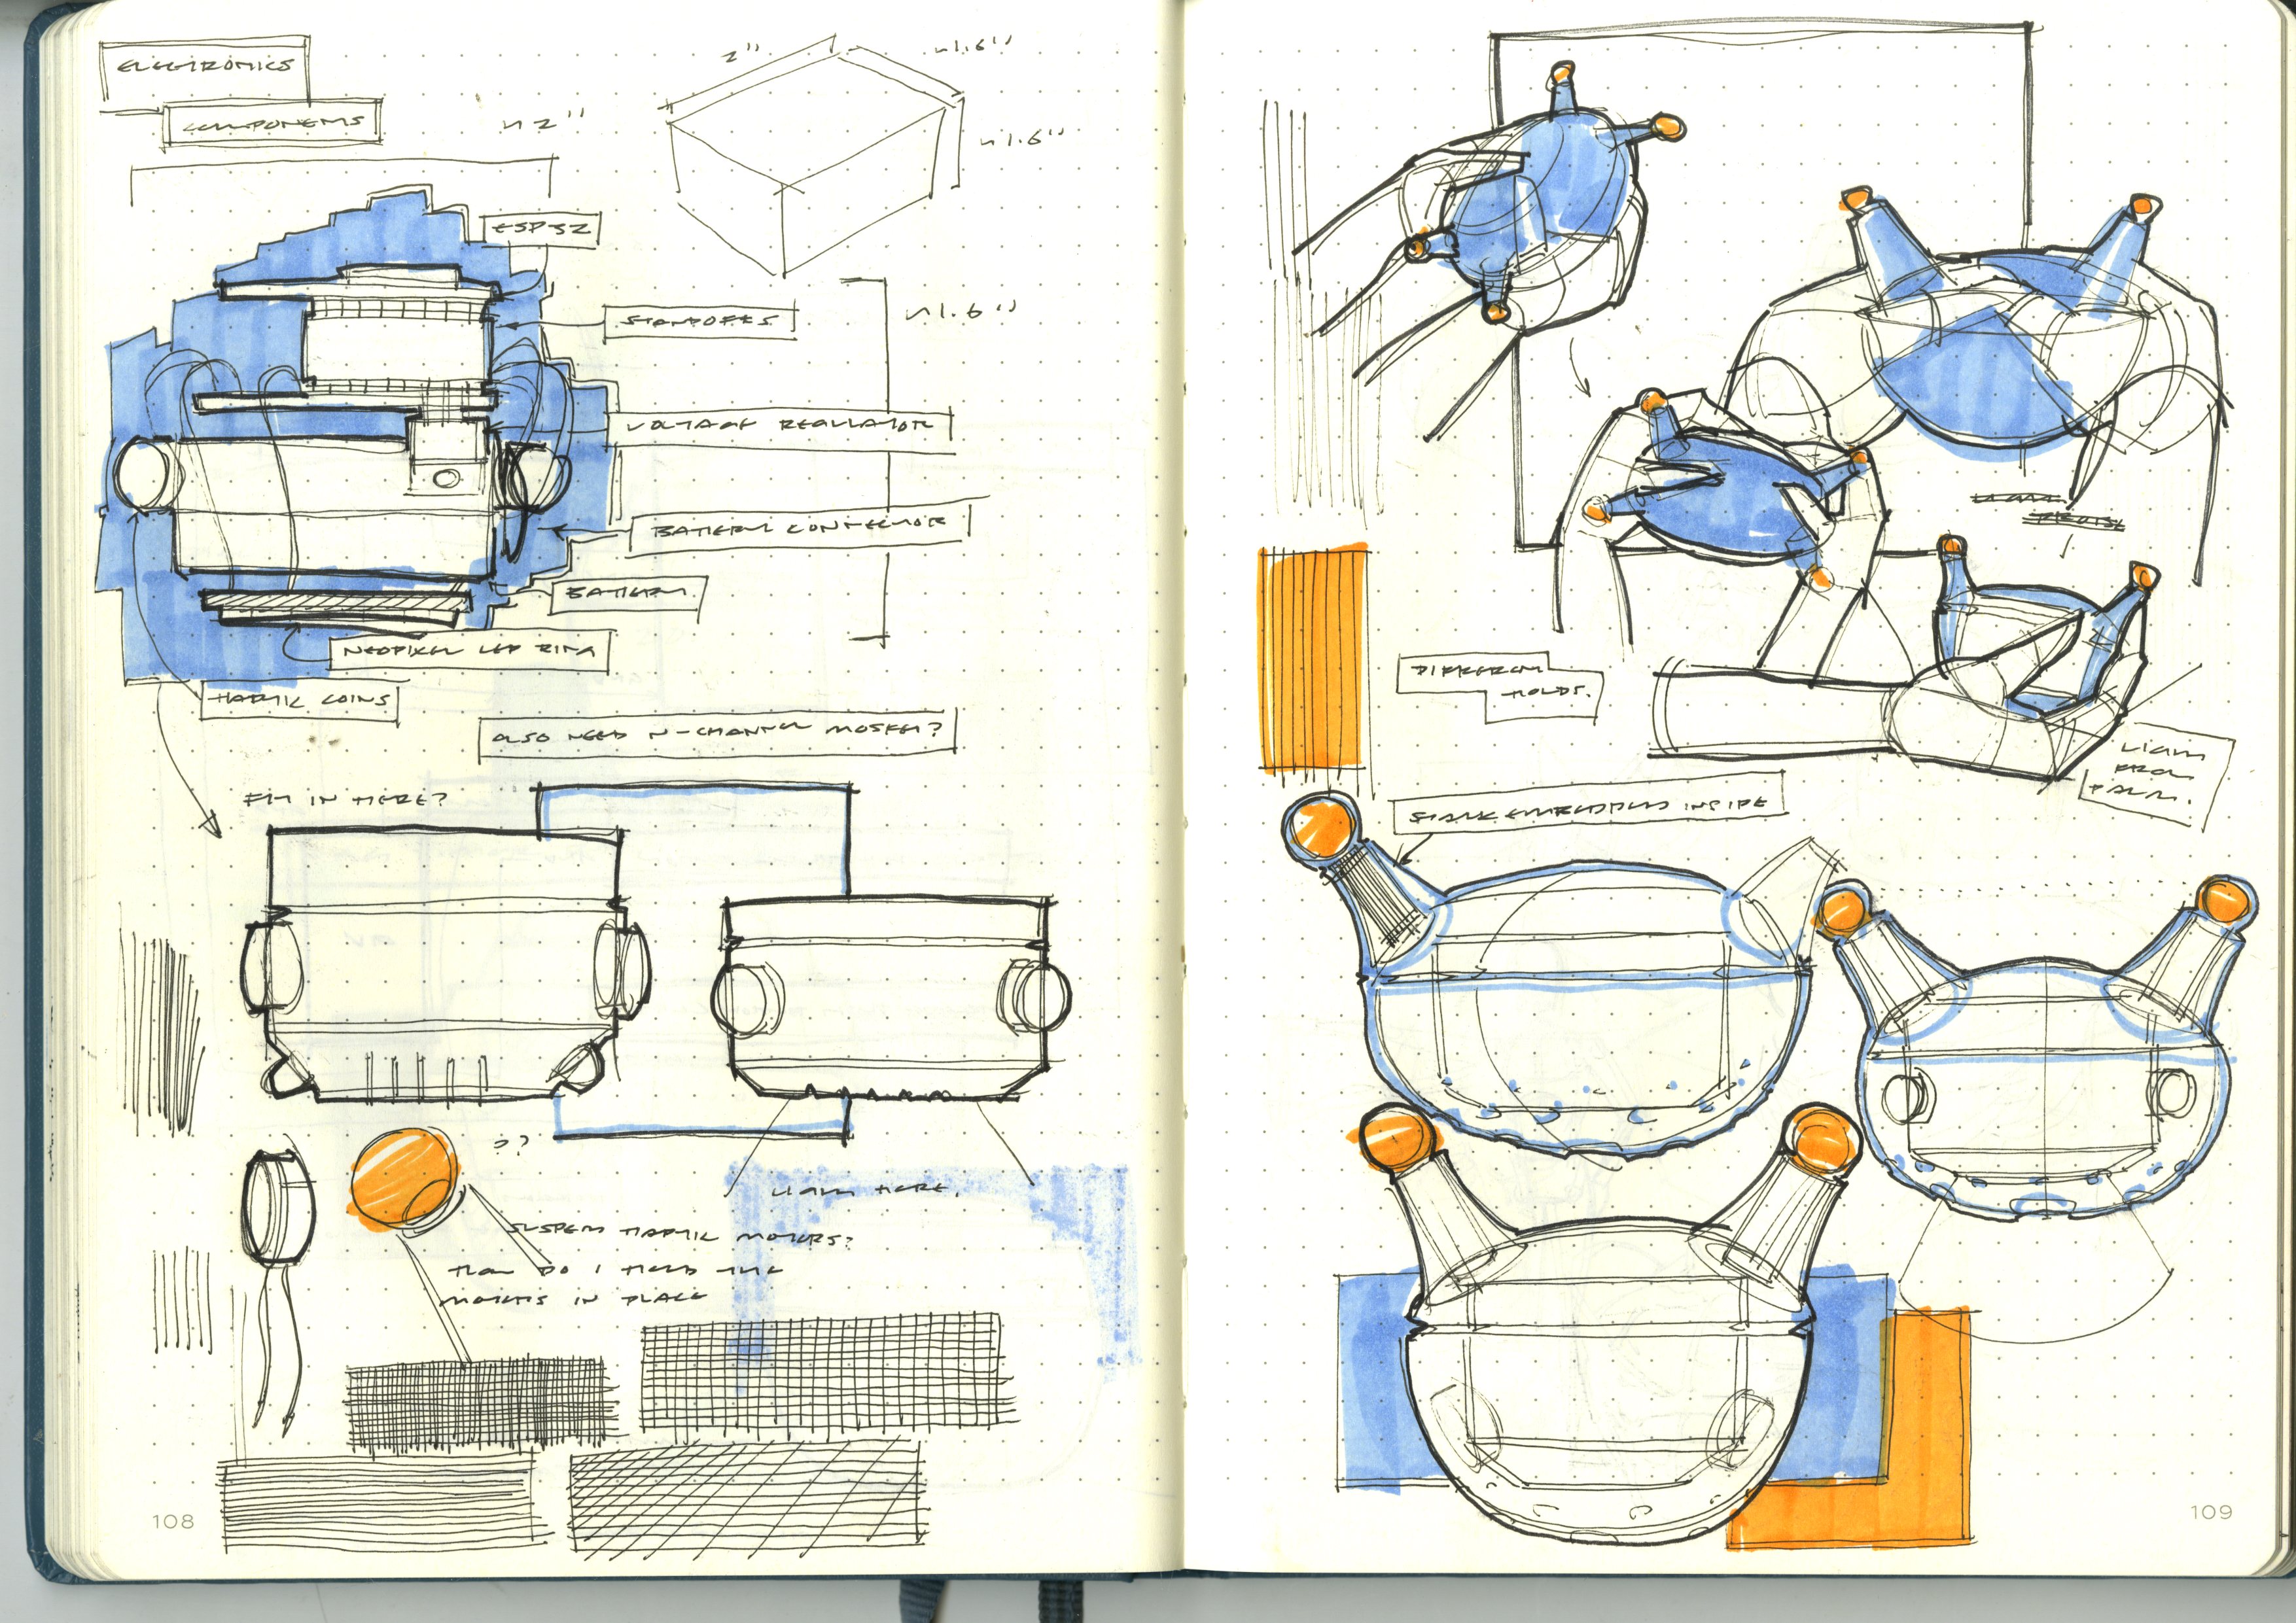 ELECTRONICS
COMPONENTS
2"
~1.6"
~2"
~1.6"
ESP32
STANDOFFS
~1.6"
VOLTAGE REGULATOR
BATTERY CONNECTOR
BATTERY
NEOPIXEL LED RING
HAPTIC COINS
ALSO NEED N-CHANNEL MOSFET?
FIT IN HERE?
??
LIGHT HERE.
SUSPEND HAPTIC MOTORS?
HOW DO I HOLD THE
MOTORS IN PLACE
108
DIFFERENT
HOLDS.
LIGHT
FROM
PALM.
STALK EMBEDDED INSIDE
109